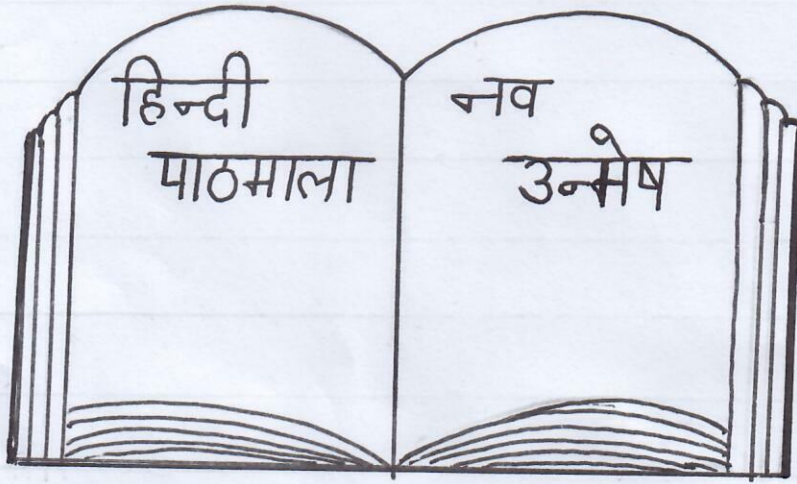 हिन्दी
पाठमाला
नव
उन्मेष